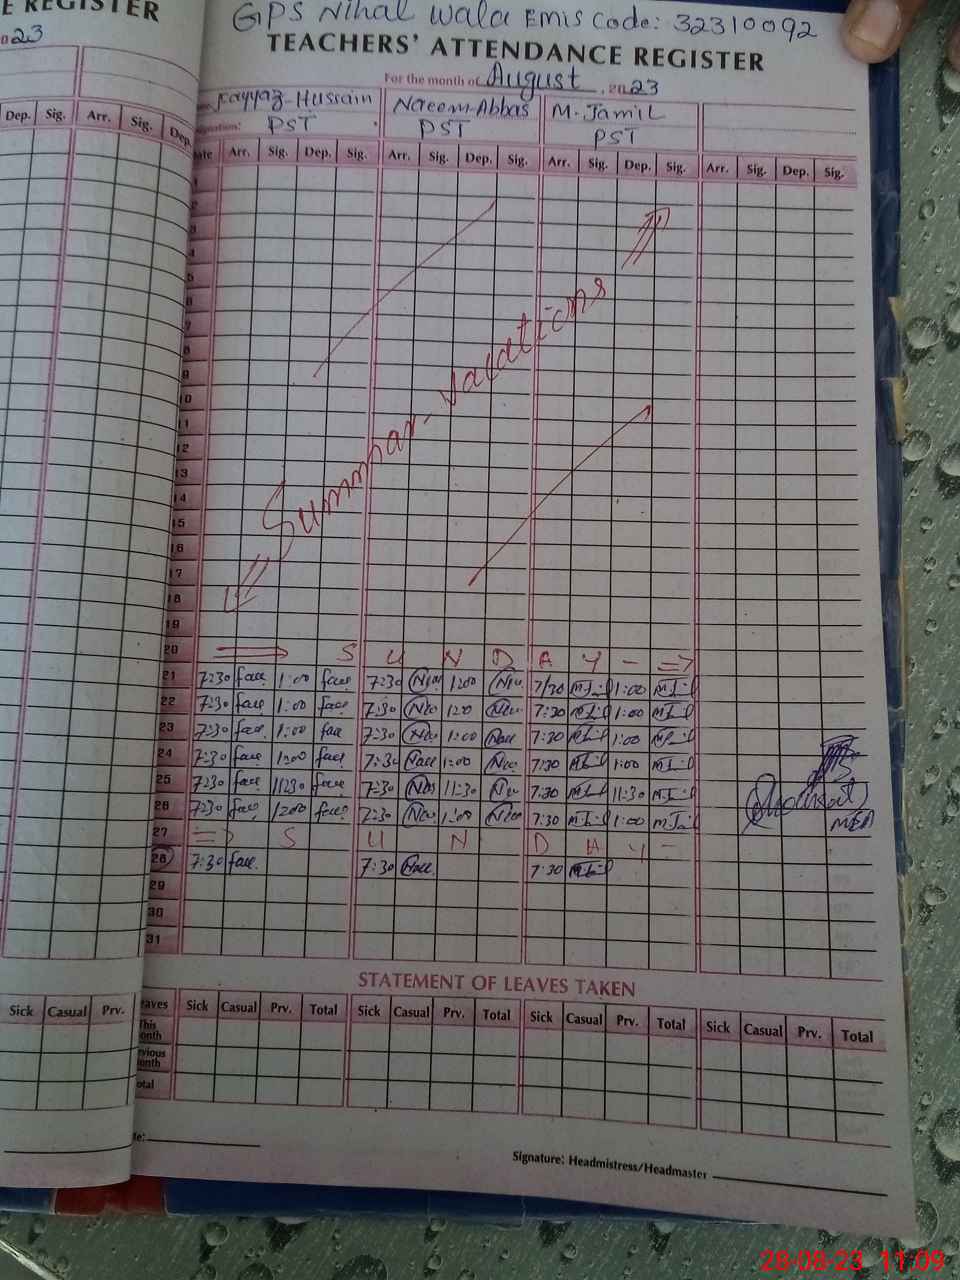 E REGISTER
023
Dep. Sig. Arr. Sig. Dep.
GPS Nihal Wala Emis Code: 32310092
TEACHERS' ATTENDANCE REGISTER
For the month of August, 2023
Fayyaz-Hussain Naeem-Abbas M. Jamil
PST PST PST
Arr. Sig. Dep. Sig. Arr. Sig. Dep. Sig. Arr. Sig. Dep. Sig. Arr. Sig. Dep. Sig.
1
2
3
4
5
6
7
8
9
10
11
12
13
14
15
16
17
18
19
Summar-vacations
20 S U N D A Y
21 7:30 1:00 7:30 1:00 7:30 1:00
22 7:30 1:00 7:30 1:00 7:30 1:00
23 7:30 1:00 7:30 1:00 7:30 1:00
24 7:30 1:00 7:30 1:00 7:30 1:00
25 7:30 11:30 7:30 11:30 7:30 11:30
26 7:30 1:00 7:30 1:00 7:30 1:00
27 S U N D A Y
28 7:30 7:30 7:30
29
30
31
STATEMENT OF LEAVES TAKEN
Sick Casual Prv.
eaves Sick Casual Prv. Total Sick Casual Prv. Total Sick Casual Prv. Total Sick Casual Prv. Total
This
onth
evious
month
otal
te:
Signature: Headmistress/Headmaster
28-08-23 11:09